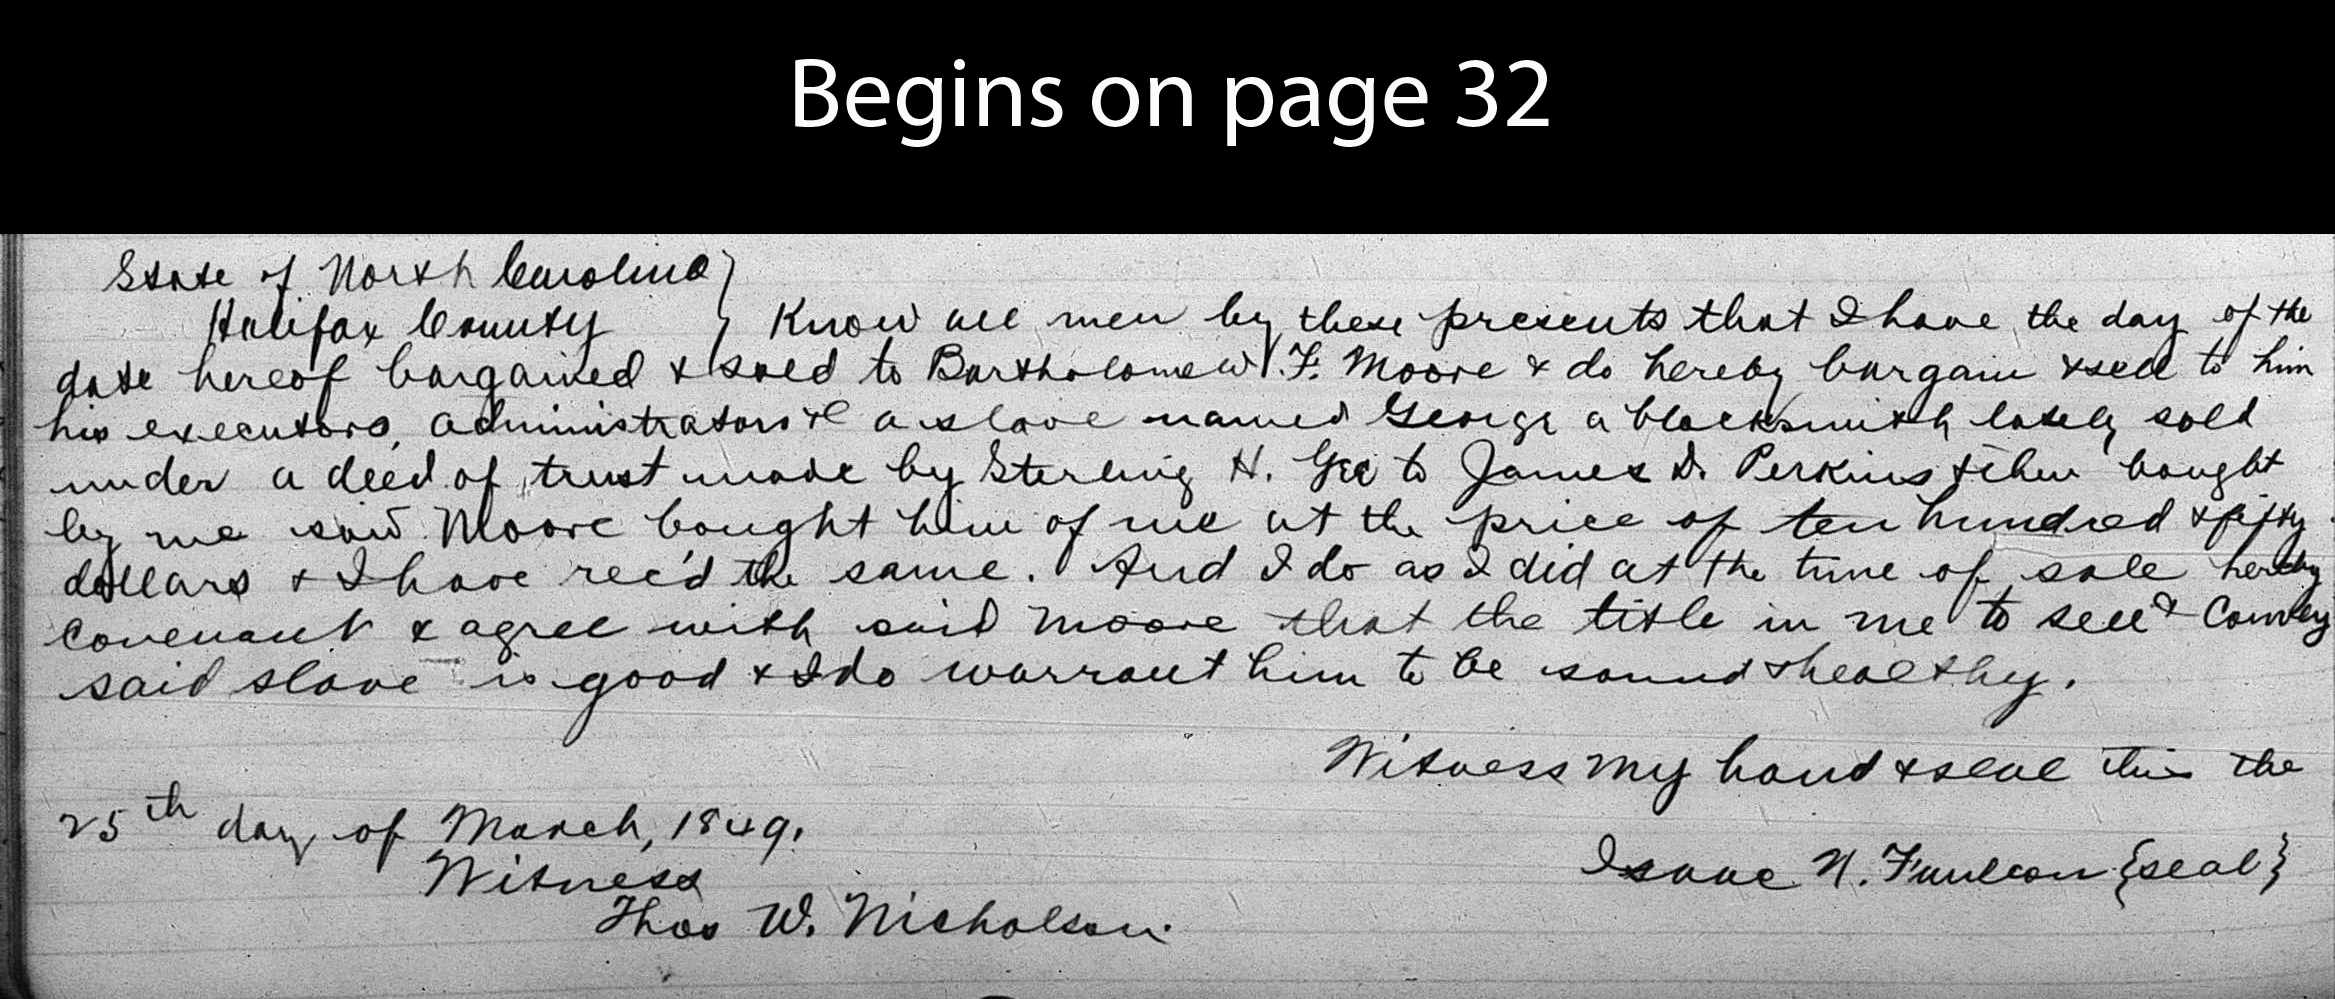 Begins on page 32
State of North Carolina }
Halifax County } Know all men by these presents that I have the day of the
date hereof bargained & sold to Bartholomew F. Moore & do hereby bargain & sell to him
his executors, administrators &c a slave named George a blacksmith lately sold
under a deed of trust made by Sterling H. Gee to James D. Perkins & then bought
by me said Moore bought him of me at the price of ten hundred & fifty
dollars & I have rec'd the same. And I do as I did at the time of sale hereby
covenant & agree with said Moore that the title in me to sell & convey
said slave is good & I do warrant him to be sound & healthy.
Witness my hand & seal this the
25th day of March, 1849.
Isaac N. Faulcon {seal}
Witness
Thos W. Nicholson.